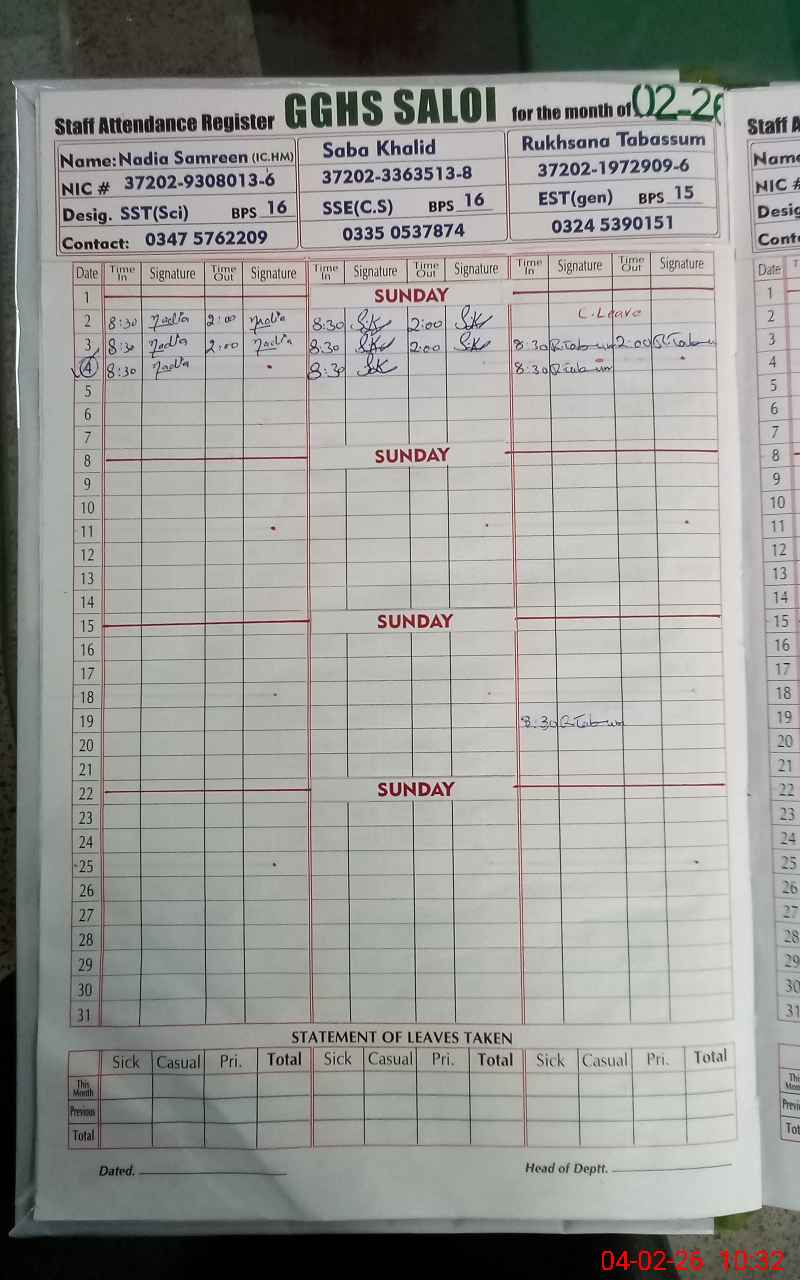 Staff Attendance Register GGHS SALOI for the month of 02-26
Name: Nadia Samreen (IC.HM) Saba Khalid Rukhsana Tabassum
NIC # 37202-9308013-6 37202-3363513-8 37202-1972909-6
Desig. SST(Sci) BPS 16 SSE(C.S) BPS 16 EST(gen) BPS 15
Contact: 0347 5762209 0335 0537874 0324 5390151
Date Time In Signature Time Out Signature Time In Signature Time Out Signature Time In Signature Time Out Signature
1 SUNDAY
2 8:30 Nadia 2:00 Nadia 8:30 SK 2:00 SK C.Leave
3 8:30 Nadia 2:00 Nadia 8:30 SK 2:00 SK 8:30 R.Tabsum 2:00 R.Tabsum
4 8:30 Nadia 8:30 SK 8:30 R.Tabsum
5
6
7
8 SUNDAY
9
10
11
12
13
14
15 SUNDAY
16
17
18
19 8:30 R.Tabsum
20
21
22 SUNDAY
23
24
25
26
27
28
29
30
31
STATEMENT OF LEAVES TAKEN
Sick Casual Pri. Total Sick Casual Pri. Total Sick Casual Pri. Total
This Month
Previous
Total
Dated. Head of Deptt.
Staff
Name
NIC #
Desig
Cont
Date
1
2
3
4
5
6
7
8
9
10
11
12
13
14
15
16
17
18
19
20
21
22
23
24
25
26
27
28
29
30
31
04-02-26 10:32